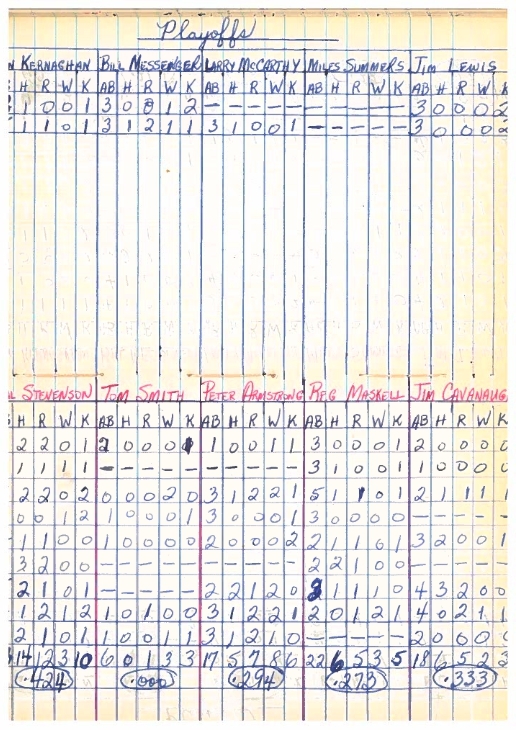 Playoffs
KERNAGHAN BILL MESSENGER LARRY MCCARTHY MILES SUMMERS JIM LEWIS
H R W K AB H R W K AB H R W K AB H R W K AB H R W K
1 0 0 1 3 0 0 1 2 – – – – – – – – – – 3 0 0 0 2
1 1 0 1 3 1 2 1 1 3 1 0 0 1 – – – – – 3 0 0 0 2
STEVENSON TOM SMITH PETER ARMSTRONG REG MASKELL JIM CAVANAUG
H R W K AB H R W K AB H R W K AB H R W K AB H R W K
2 2 0 1 2 0 0 0 1 0 0 1 1 3 0 0 0 1 2 0 0 0 0
1 1 1 1 – – – – – – – – – – 3 1 0 0 1 1 0 0 0 0
2 2 0 2 0 0 0 2 0 3 1 2 2 1 5 1 1 0 1 2 1 1 1 1
0 0 1 2 1 0 0 0 1 3 0 0 0 1 3 0 0 0 0 – – – – –
1 1 0 0 1 0 0 0 0 2 0 0 0 2 2 1 1 0 1 3 2 0 0 1
3 2 0 0 – – – – – – – – – – 2 2 1 0 0 – – – – –
2 1 0 1 – – – – – 2 2 1 2 0 1 1 1 0 4 3 2 0 0
1 2 1 2 1 0 1 0 0 3 1 2 2 1 2 0 1 2 1 4 0 2 1 1
2 1 0 1 1 0 0 1 1 3 1 2 1 0 – – – – – 2 0 0 0 0
14 12 3 10 6 0 1 3 3 17 5 7 8 6 22 6 5 3 5 18 6 5 2 3
.424 .000 .294 .273 .333